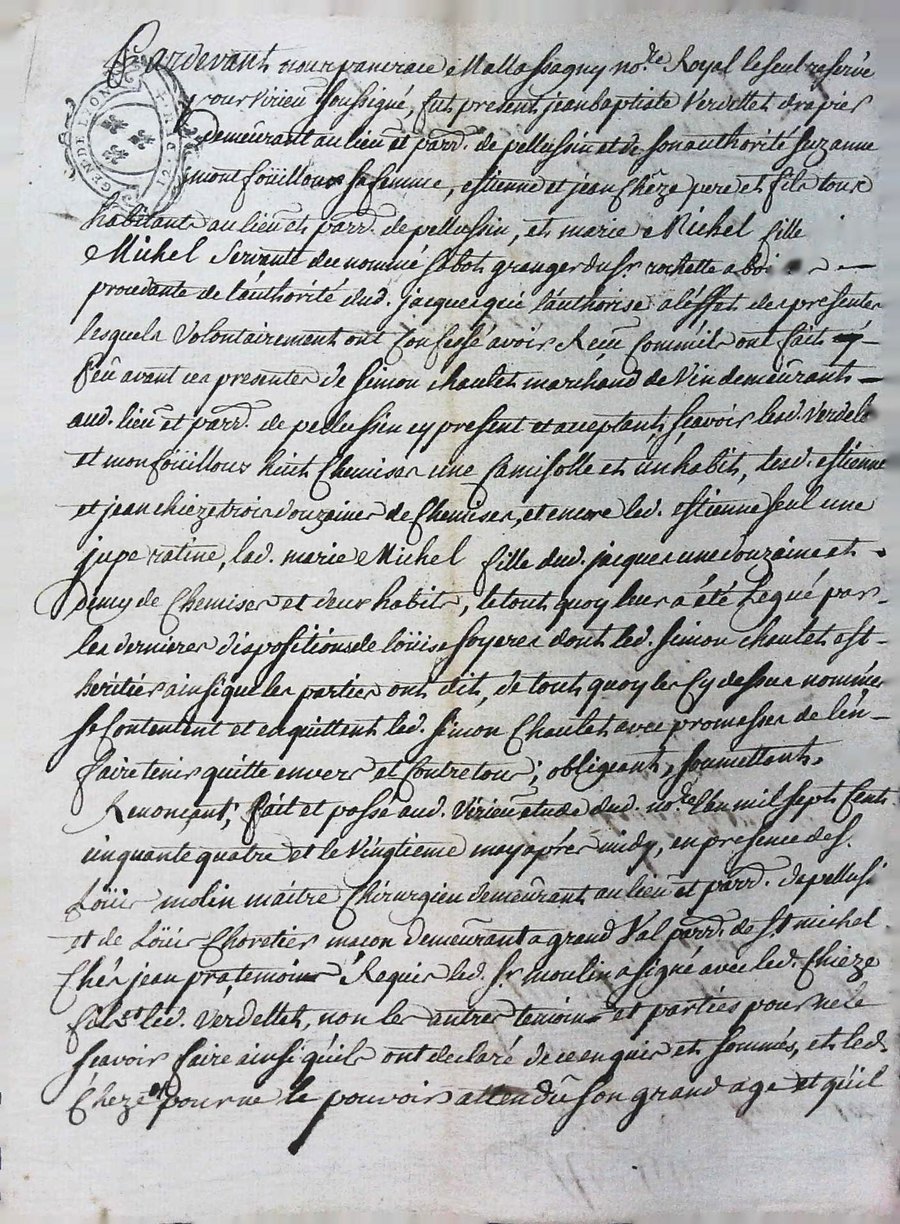 Pardevant nous pancrace Mallassagny no.re Royal le seul reservé
pour virieu soussigné, fut present jean baptiste Verdellet drapier
demeurant au lieu et parr. de pellussin et de son authorité suzanne
montfoüilloux sa femme, estienne et jean Chêze pere et fils tous
habitants au lieu et parr. de pellussin, et marie Michel fille
Michel servante du nommé sabot granger du sr rochette a —
procedante de l'authorité dud. jacques qui l'authorise a l'éffet des presentes
lesquels volontairement ont confessé avoir Reçu comme ils ont fait
peu avant ces presentes de simon chaulet marchand de vin demeurant —
aud. lieu et parr. de pellussin cy present et acceptant, sçavoir led. Verdele
et monfoüilloux huit Chemises une Camisolle et un habit, lesd. estienne
et jean chieze trois douzaines de Chemises, et encore led. estienne seul une
jupe ratine, lad. marie Michel fille dud. jacques une douzaine et
demy de Chemises et deux habits, le tout quoy leur a été Legué par
les dernieres dispositions de loüise soyeres dont led. simon chaulet est
heritier ainsi que les parties ont dit, de tout quoy les Cy dessus nommés
se Contentent et en quittent led. simon Chaulet avec promasses de l'en
faire tenir quitte envers et Contre tous; obligeant, soumettant,
Renonçant, fait et passé aud. Virieu etude dud. no.re l'an mil sept Cent
cinquante quatre et le vingtieme may aprés midy, en presence de s.
Loüis molin maitre Chirurgien demeurant au lieu et parr. de pellusi.
et de Loüis Choretier maçon demeurant a grand Val parr. de st michel.
Chés jean pra temoins Requis led. sr. moulin a signé avec led. Chieze
fils et led. Verdellet, non les autres temoins et parties pour ne le
sçavoir faire ainsi qu'ils ont declaré de ce enquis et sommés, et led.
Cheze pour ne le pouvoir attendu son grand age et qu'il